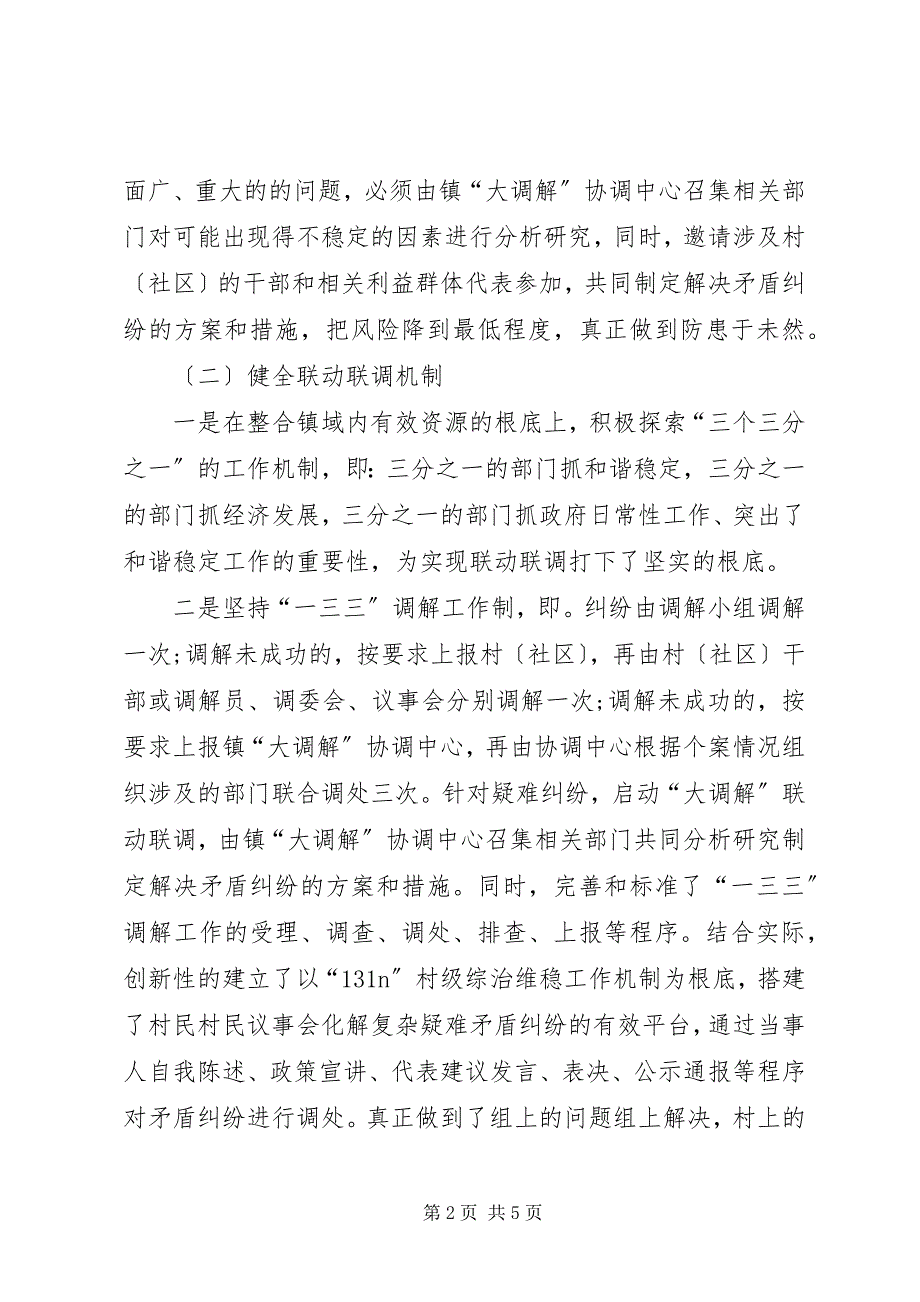 面广、重大的的问题，必须由镇“大调解〞协调中心召集相关部
门对可能出现得不稳定的因素进行分析研究，同时，邀请涉及村
〔社区〕的干部和相关利益群体代表参加，共同制定解决矛盾纠
纷的方案和措施，把风险降到最低程度，真正做到防患于未然。
〔二〕健全联动联调机制
一是在整合镇域内有效资源的根底上，积极探索“三个三分
之一〞的工作机制，即：三分之一的部门抓和谐稳定，三分之一
的部门抓经济发展，三分之一的部门抓政府日常性工作、突出了
和谐稳定工作的重要性，为实现联动联调打下了坚实的根底。
二是坚持“一三三〞调解工作制，即。纠纷由调解小组调解
一次;调解未成功的，按要求上报村〔社区〕，再由村〔社区〕干
部或调解员、调委会、议事会分别调解一次;调解未成功的，按
要求上报镇“大调解〞协调中心，再由协调中心根据个案情况组
织涉及的部门联合调处三次。针对疑难纠纷，启动“大调解〞联
动联调，由镇“大调解〞协调中心召集相关部门共同分析研究制
定解决矛盾纠纷的方案和措施。同时，完善和标准了“一三三〞
调解工作的受理、调查、调处、排查、上报等程序。结合实际，
创新性的建立了以“131n〞村级综治维稳工作机制为根底，搭建
了村民村民议事会化解复杂疑难矛盾纠纷的有效平台，通过当事
人自我陈述、政策宣讲、代表建议发言、表决、公示通报等程序
对矛盾纠纷进行调处。真正做到了组上的问题组上解决，村上的
第 2 页 共 5 页